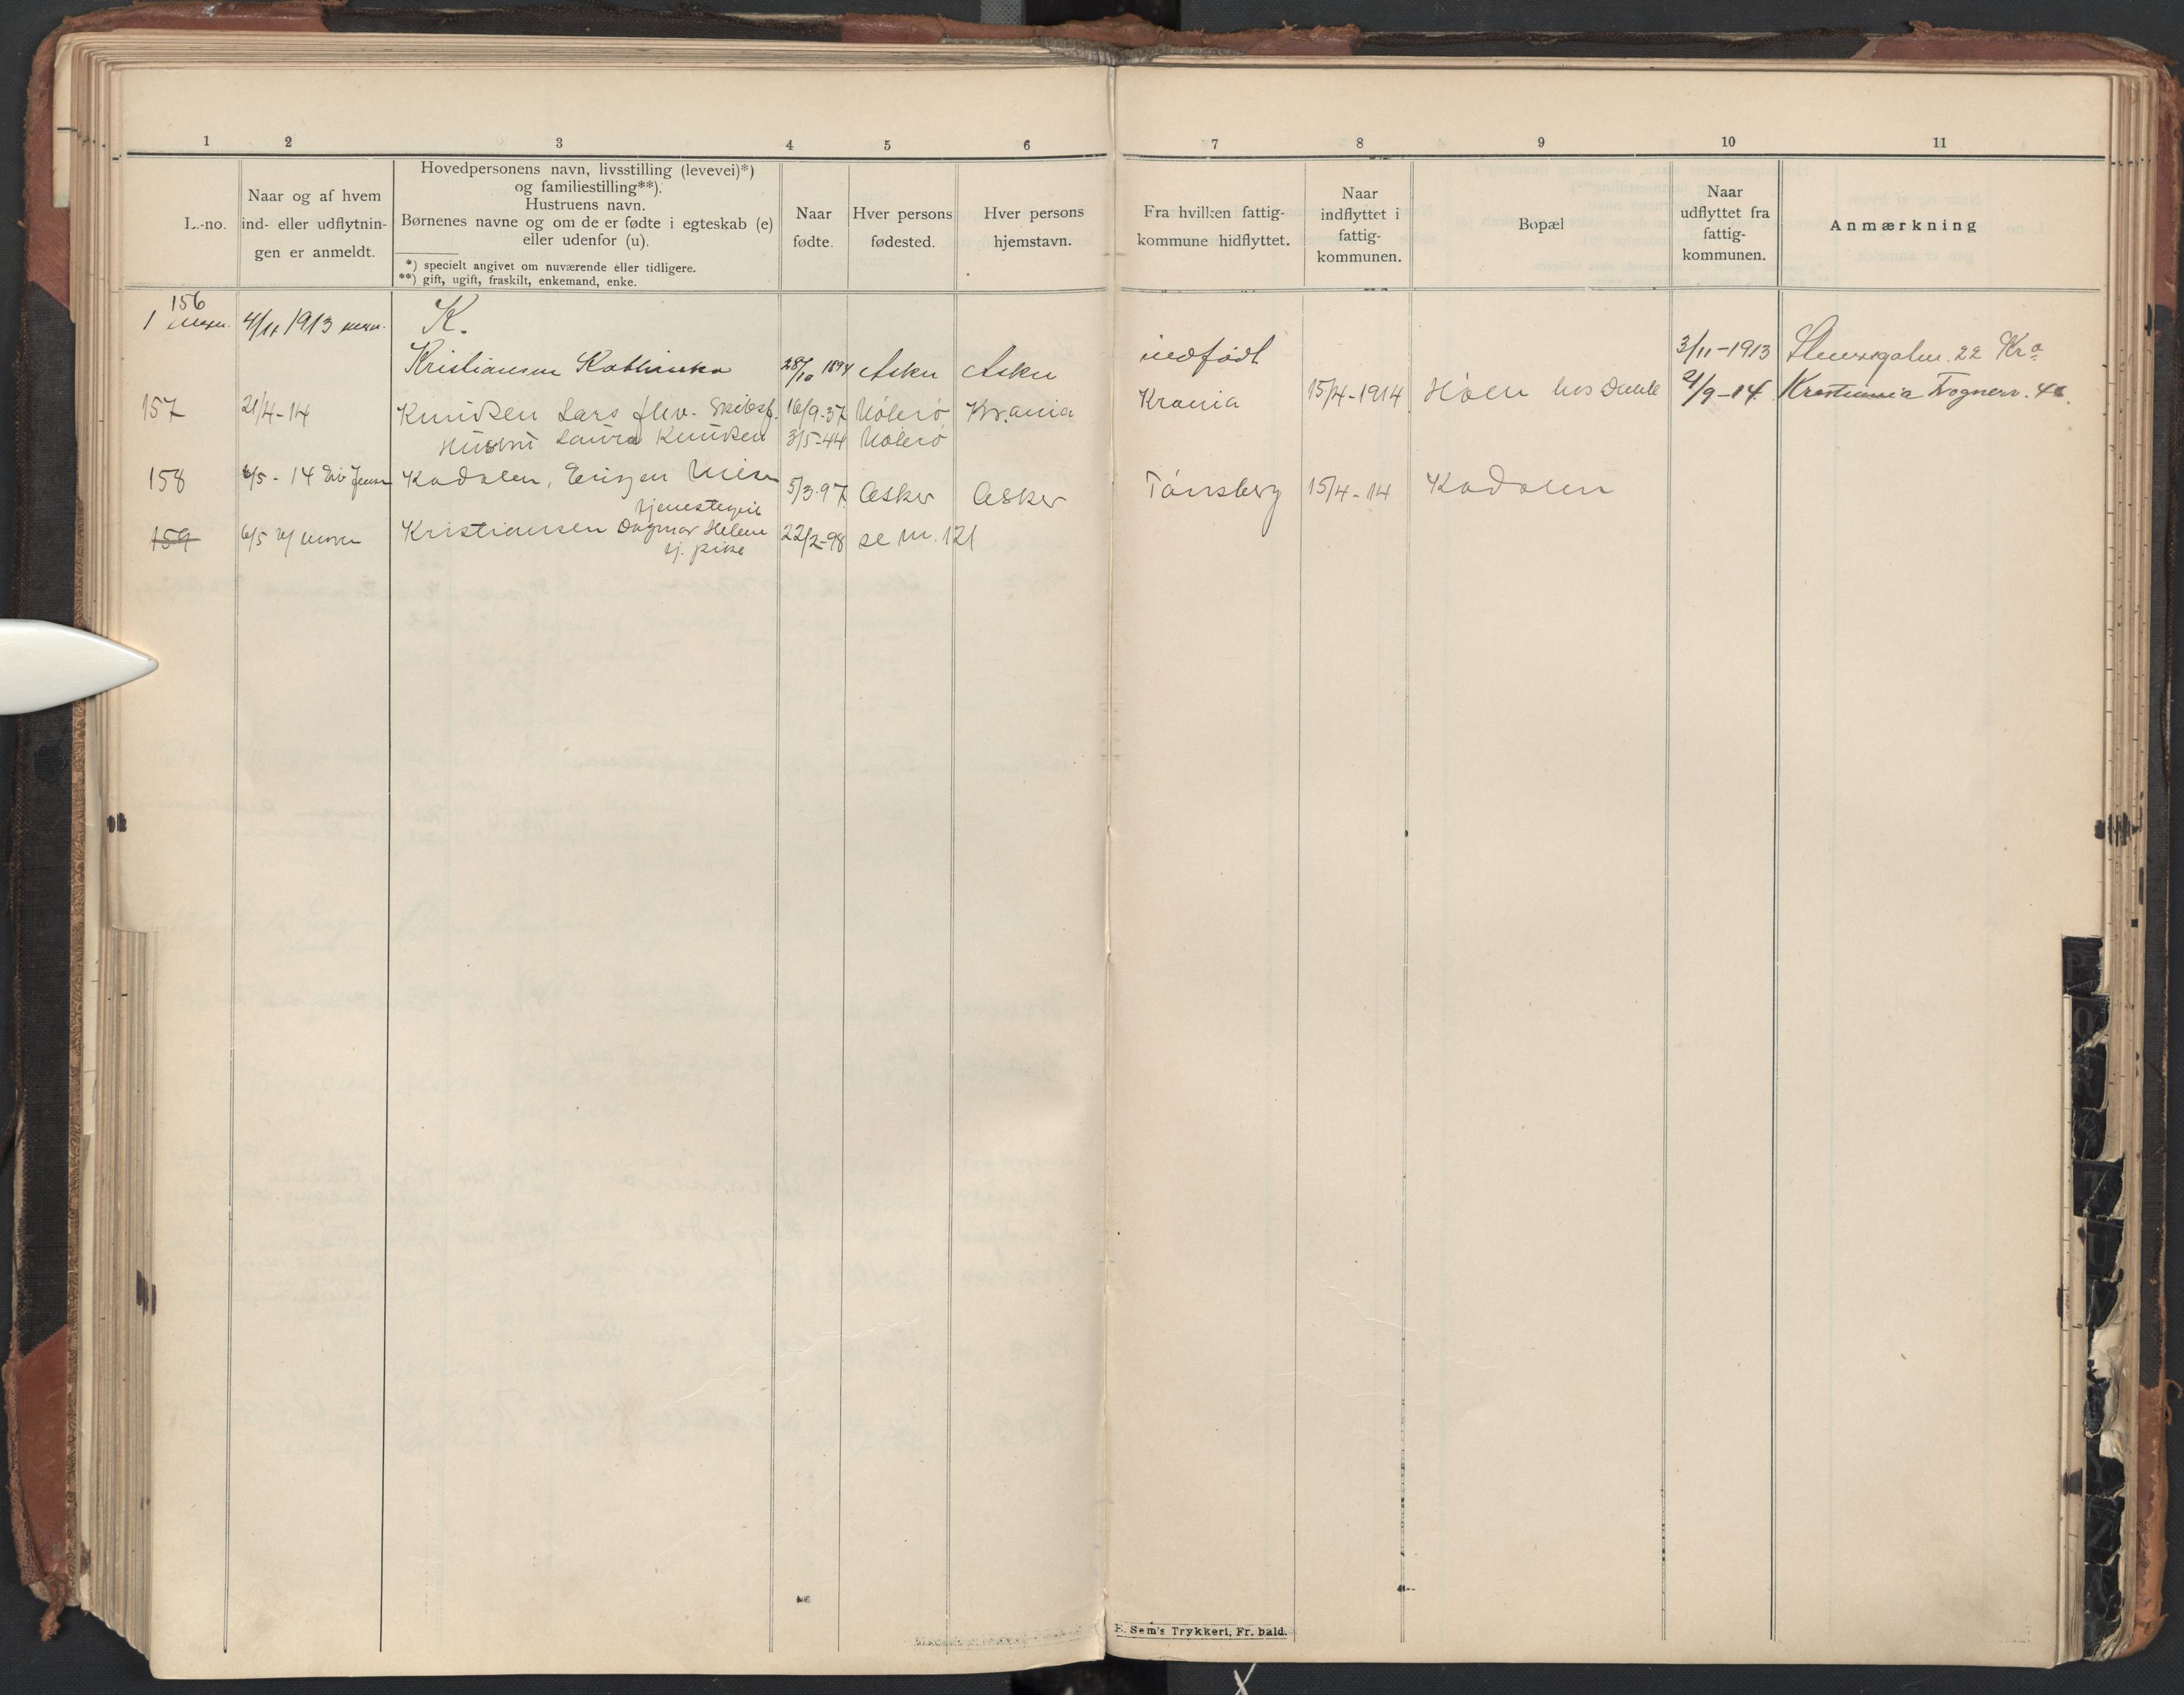 1 2 3 4 5 6 7 8 9 10 11
L.-no.
Naar og af hvem
ind- eller udflytnin-
gen er anmeldt.
Hovedpersonens navn, livsstilling (levevei)*)
og familiestilling**).
Hustruens navn.
Børnenes navne og om de er fødte i egteskab (e)
eller udenfor (u).
*) specielt angivet om nuværende eller tidligere.
**) gift, ugift, fraskilt, enkemand, enke.
Naar
fødte.
Hver persons
fødested.
Hver persons
hjemstavn.
Fra hvilken fattig-
kommune hidflyttet.
Naar
indflyttet i
fattig-
kommunen.
Bopæl
Naar
udflyttet fra
fattig-
kommunen.
Anmærkning
156
1 4/11 1913 K.
Kristiansen Kathinka 28/10 1894 Asker Asker indfødt 3/11-1913 22 Kra
157 21/4-14 Knudsen Lars fhv. Skibsf. 16/9-37 Nøterø Kr.ania Krania 15/4-1914 Høen hos 21/9-14 Kristiania
Hustru Laura Knudsen 3/5-44 Nøterø
158 6/5-14 Kadalen, 5/3-97 Asker Asker Tønsberg 15/4-14 Kadalen
159 6/5 v/ moren Kristiansen Dagmar Helene 22/2-98 se nr. 121
tj. pike
E. Sem's Trykkeri, Fr.hald.